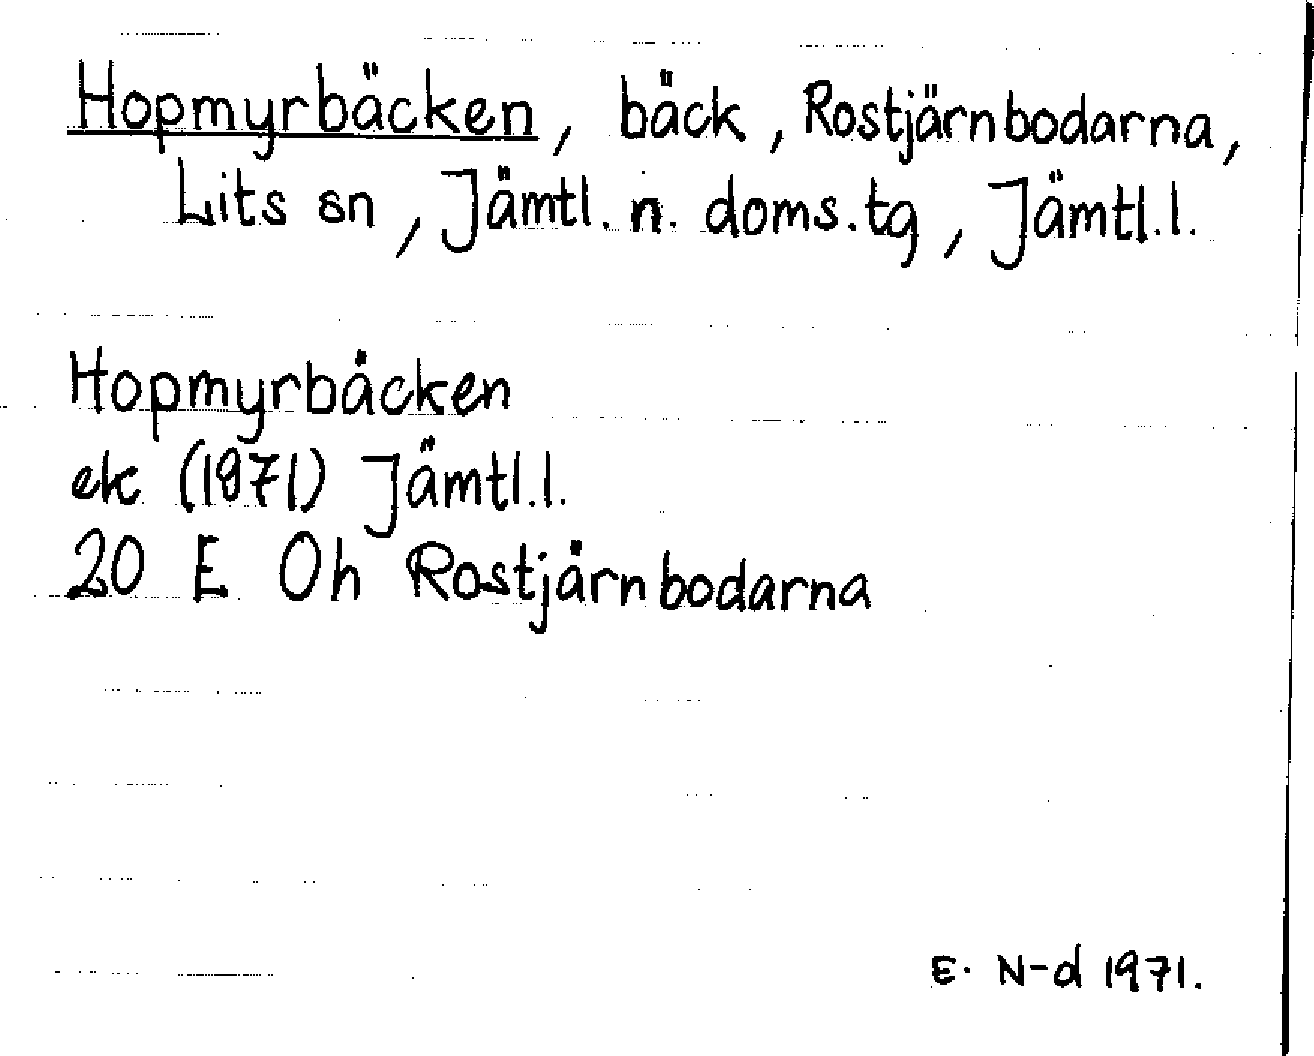 Hopmyrbäcken, bäck, Rostjärnbodarna,
Lits sn, Jämtl. n. doms.tg, Jämtl.l.
Hopmyrbäcken
ek (1971) Jämtl.l.
20 E Oh Rostjärnbodarna
E. N-d 1971.